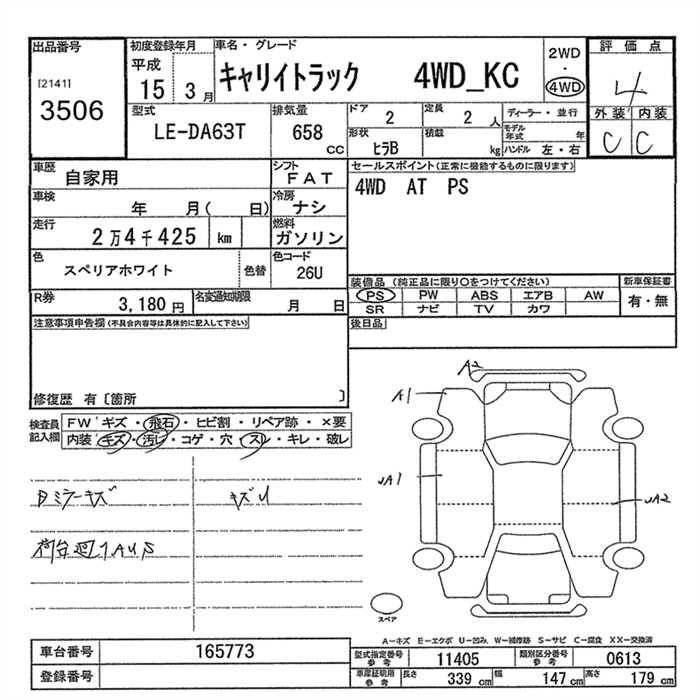 出品番号
[2141]
3506
初度登録年月
平成
15
3月
車名・グレード
キャリイトラック 4WD_KC
2WD
・
4WD
評価点
4
外装 内装
C C
型式
LE-DA63T
排気量
658
CC
ドア
2
定員
2 人
ディーラー・並行
形状
ヒラB
積載
kg
モデル年式
年
ハンドル 左・右
車歴
自家用
シフト
FAT
セールスポイント(正常に機能するものに限ります)
4WD AT PS
車検
年 月( 日)
冷房
ナシ
走行
2万4千425 km
燃料
ガソリン
色
スペリアホワイト
色替
色コード
26U
装備品(純正品に限り○をつけてください)
新車保証書
PS PW ABS エアB AW
SR ナビ TV カワ
有・無
R券
3,180 円
名変通知期限
月 日
後日品
注意事項申告欄(不具合内容等は具体的に記入して下さい)
修復歴 有〔箇所 〕
検査員記入欄
FWキズ・飛石・ヒビ割・リペア跡・×要
内装キズ・汚レ・コゲ・穴・スレ・キレ・破レ
ミラーキズ
キズU
荷台廻
A2
A1
JA1
JA2
スペア
A−キズ E−エクボ U−凹み、 W−補修跡 S−サビ C−腐食 XX−交換済
車台番号
165773
登録番号
型式指定番号
参考
11405
類別区分番号
参考
0613
車庫証明用
参考
長さ 339 cm
幅 147 cm
高さ 179 cm